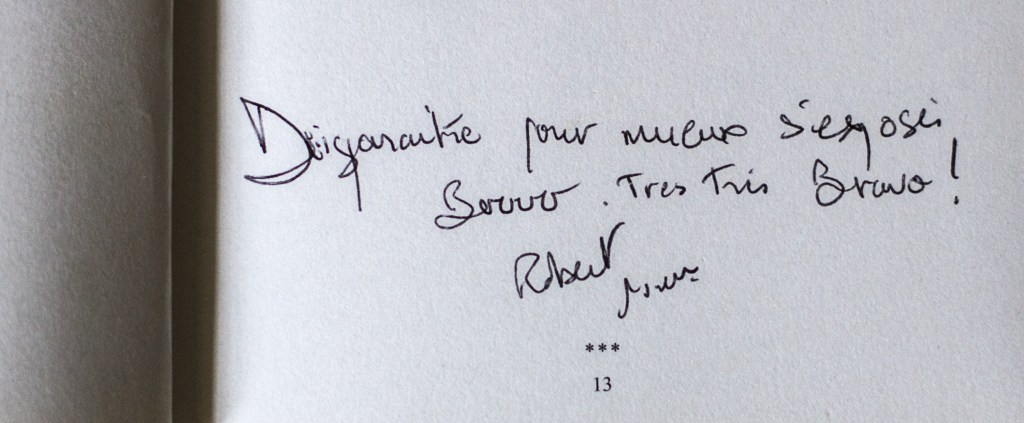 Disparaître pour mieux s'exposer
Bravo. Tres Très Bravo !
Robert
***
13